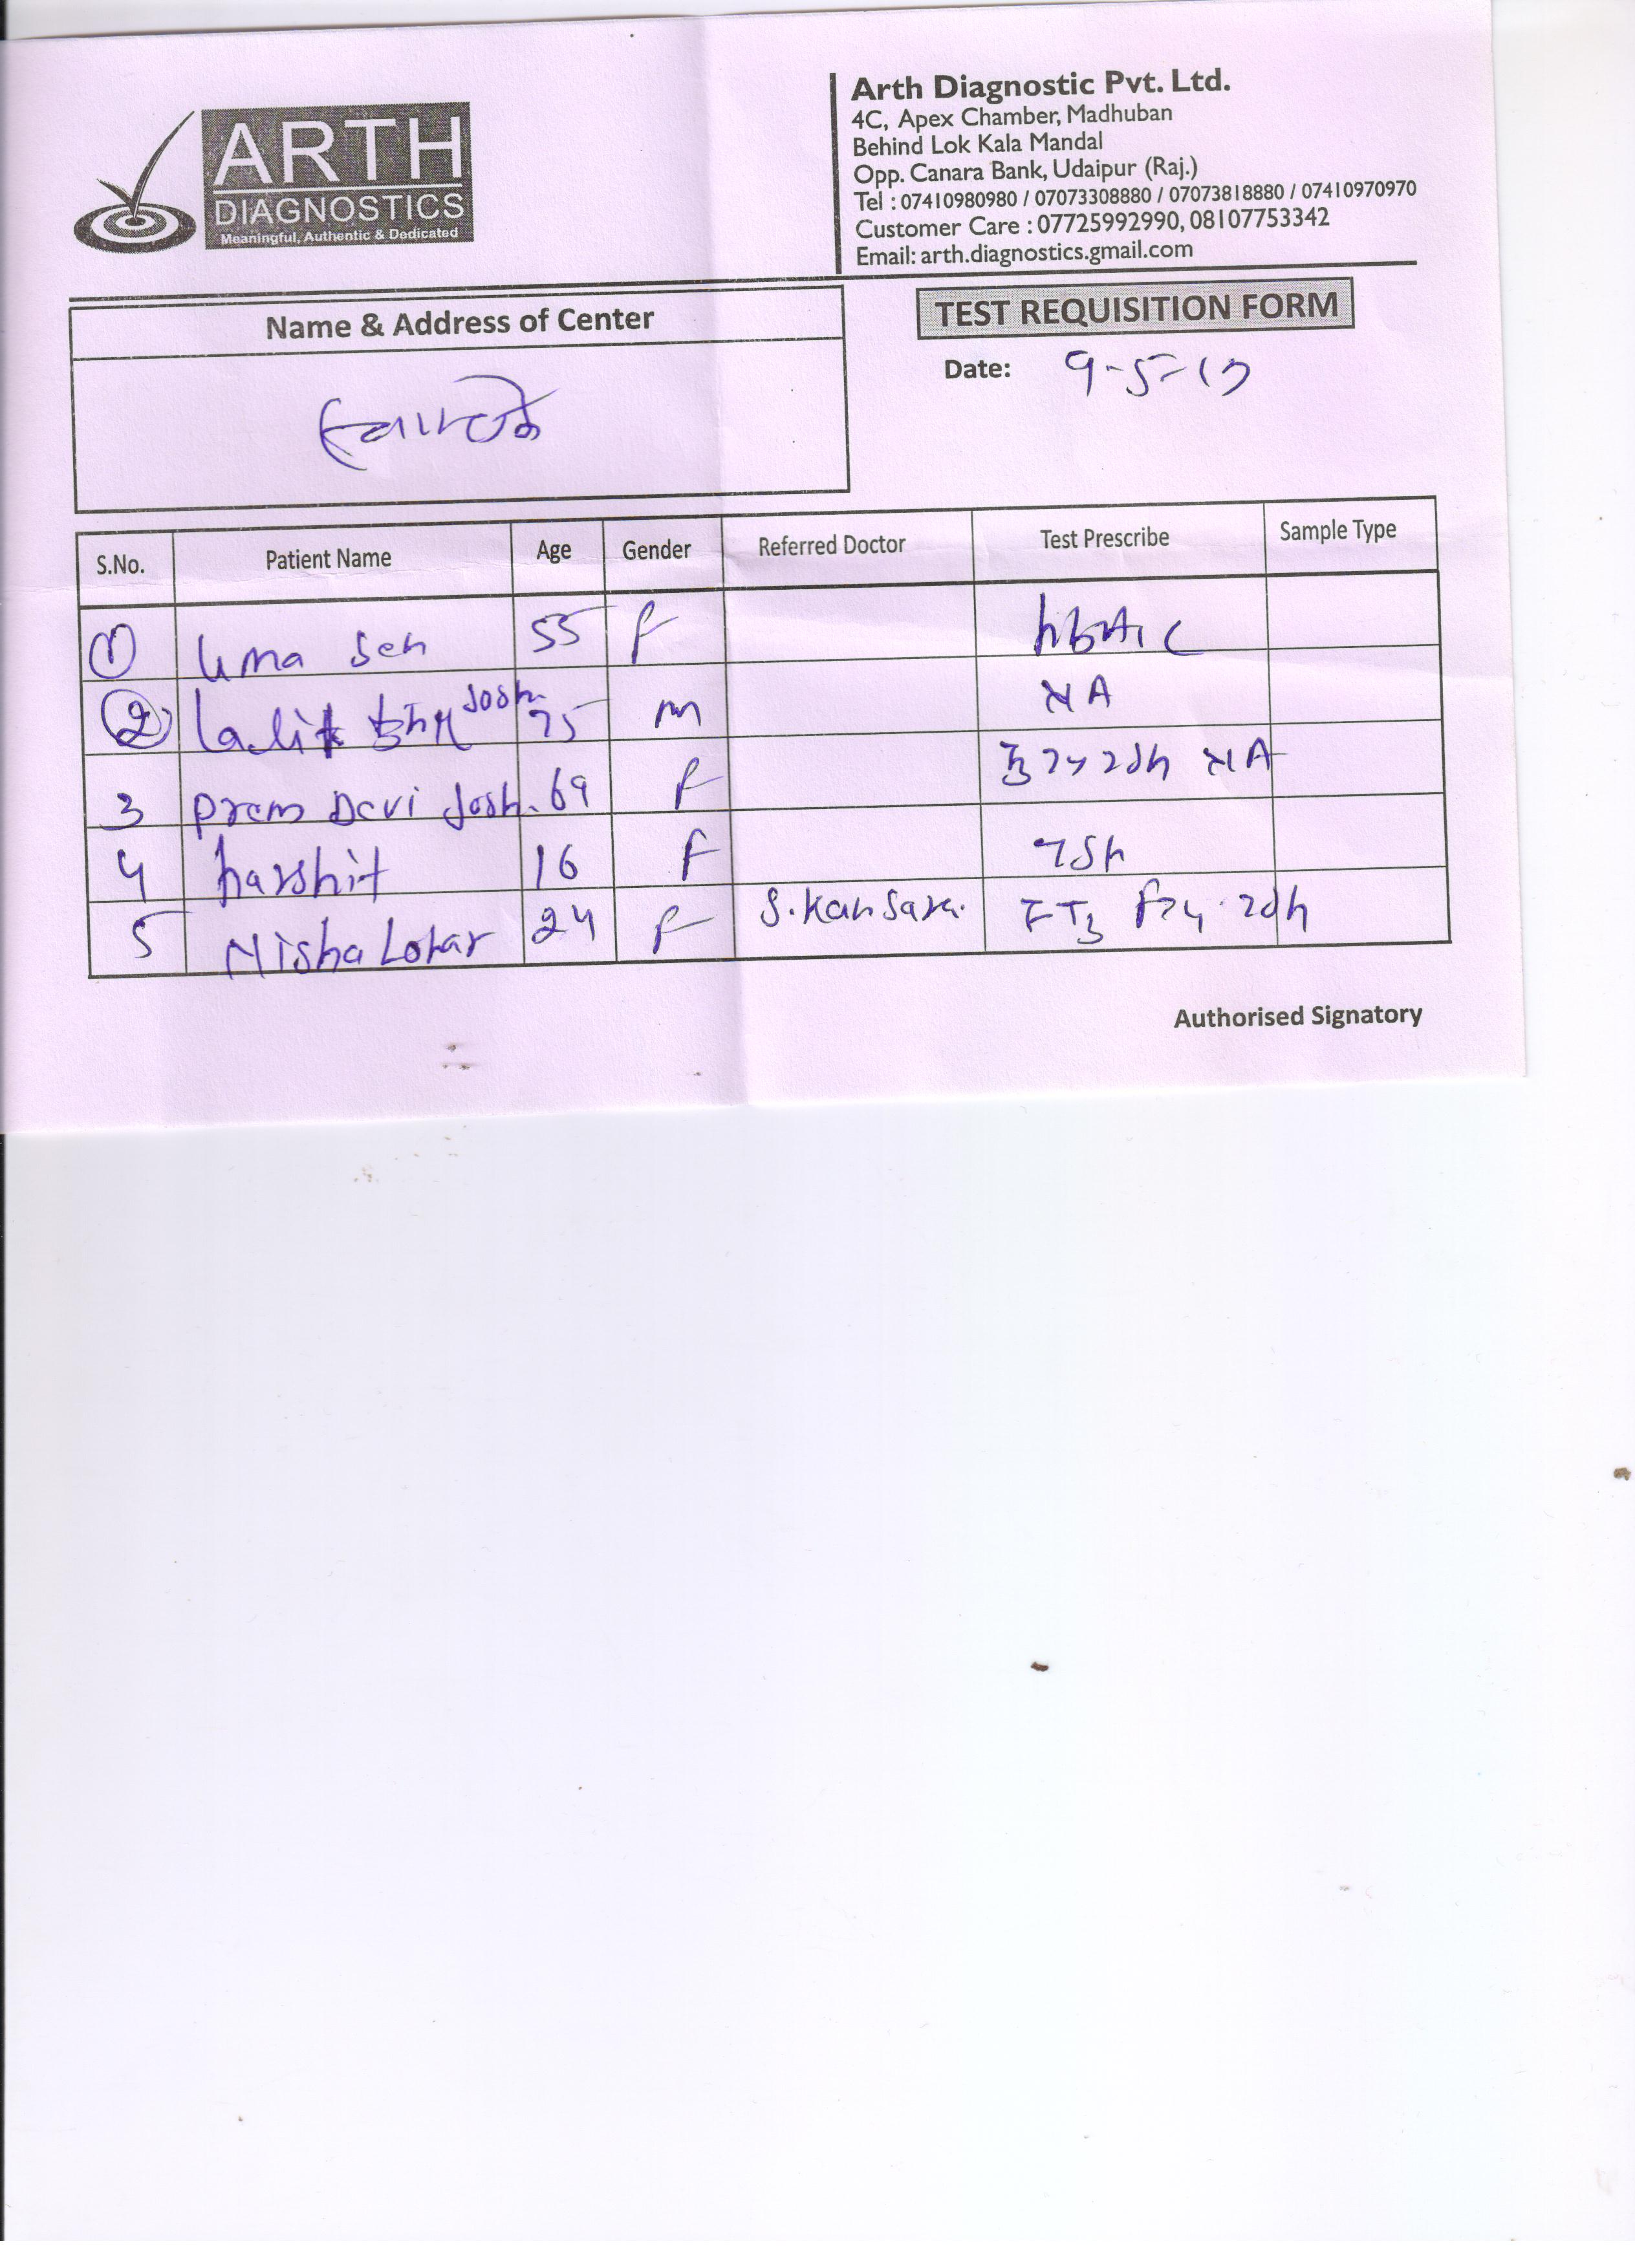 ARTH
DIAGNOSTICS
Meaningful, Authentic & Dedicated
Arth Diagnostic Pvt. Ltd.
4C, Apex Chamber, Madhuban
Behind Lok Kala Mandal
Opp. Canara Bank, Udaipur (Raj.)
Tel : 07410980980 / 07073308880 / 07073818880 / 07410970970
Customer Care : 07725992990, 08107753342
Email: arth.diagnostics.gmail.com
Name & Address of Center
TEST REQUISITION FORM
Date: 9-5-17
S.No. Patient Name Age Gender Referred Doctor Test Prescribe Sample Type
1 Uma Sen 55 F hbA1C
2 Lalit Josh. 75 m NA
3 Prem Devi Josh. 69 F NA
4 harshit 16 F TSh
5 Nisha Lohar 24 F S. Kansara. FT3
Authorised Signatory